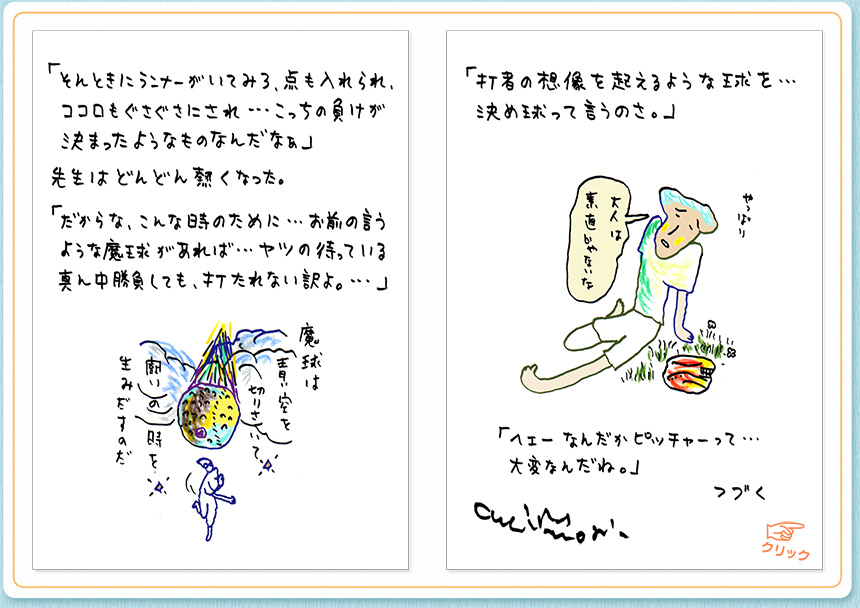 「そんときにランナーがいてみろ、点も入れられ、
ココロもぐさぐさにされ…こっちの負けが
決まったようなものなんだなぁ」
先生はどんどん熱くなった。
「だからな、こんな時のために…お前の言う
ような魔球があれば…ヤツの待っている
真ん中勝負しても、打たれない訳よ。…」
魔球は
青い空を
切りさいて
闘いの時を
生みだすのだ
「打者の想像を起えるような球を…
決め球って言うのさ。」
やっぱり
大人は
素直じゃないな
「ヘェーなんだかピッチャーって…
大変なんだね。」
つづく
クリック